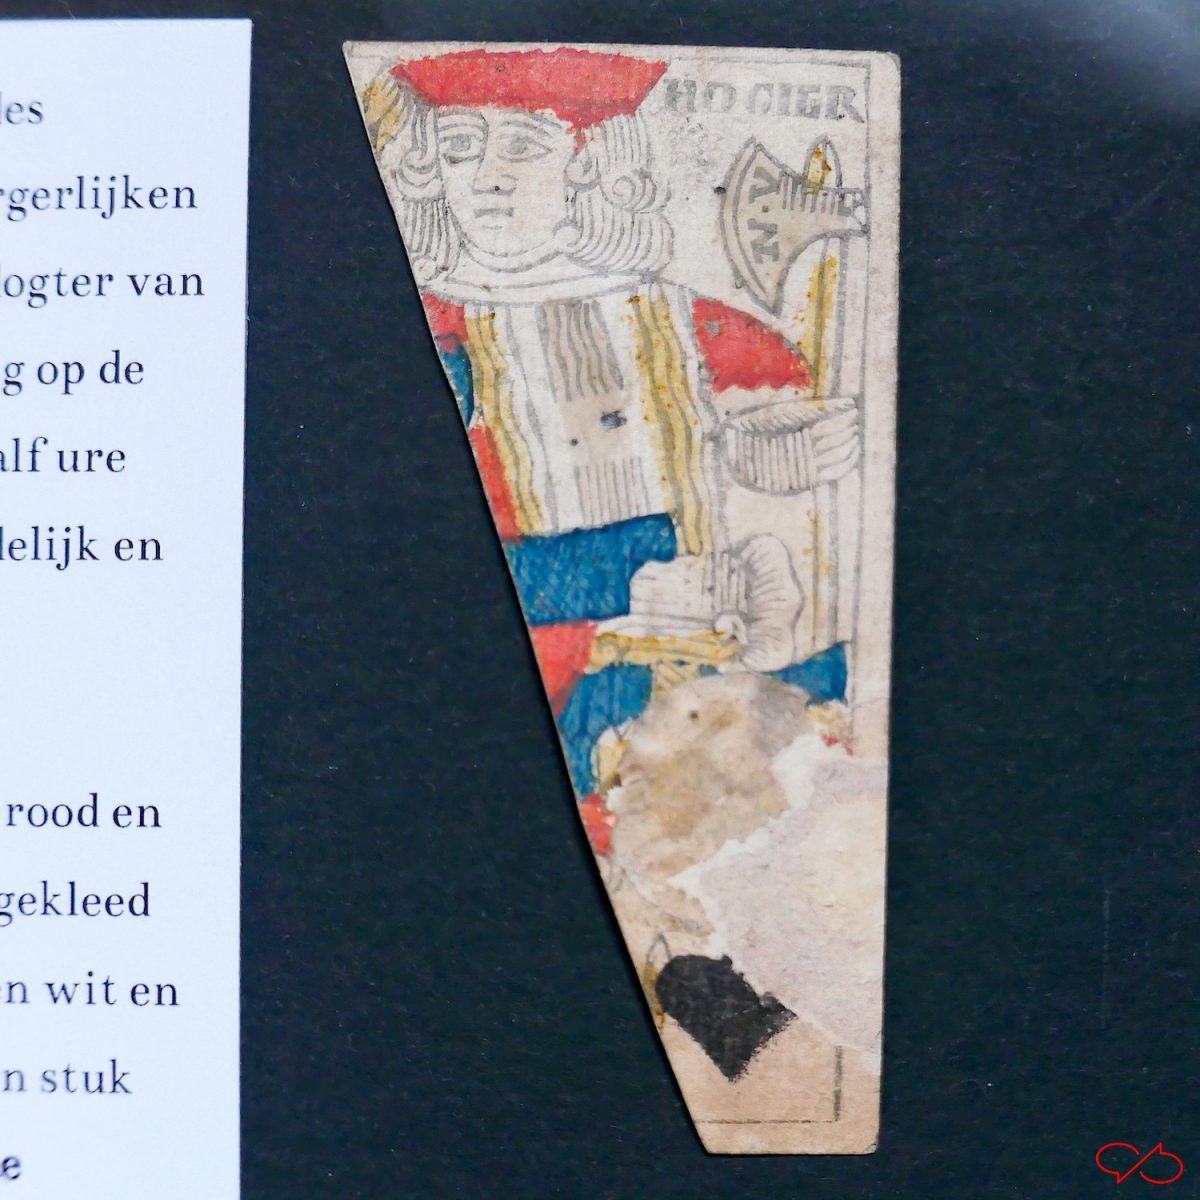 les
rgerlijken
logter van
g op de
alf ure
lelijk en
rood en
gekleed
en wit en
n stuk
e
HOGIER
N·V